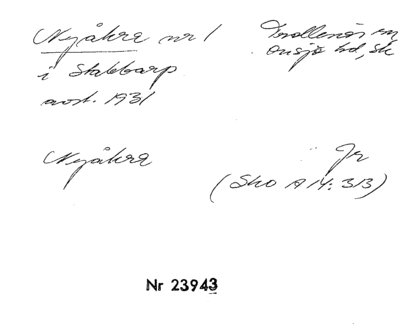 Nyåkra nr 1
Trollenäs sn
i Stabbarp
Onsjö hd, Sk
avst. 1931
Nyåkra
Jr
(Sko A 14: 313)
Nr 23943